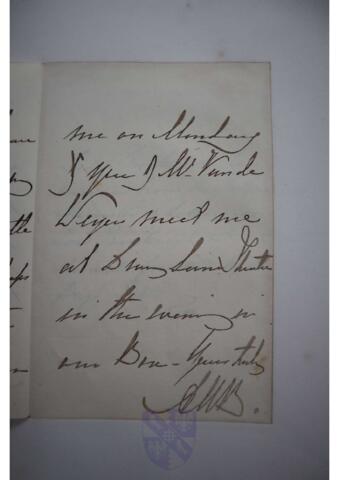 me on Monday
& you & Mr. Van de
Weyer meet me
at Drury Lane Theatre
in the evening in
our Box - Yours truly